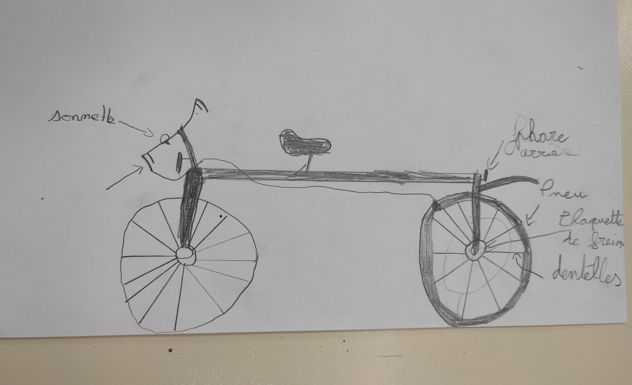 sonnette
phare
arrière
Pneu
Plaquette
de frein
dentelles